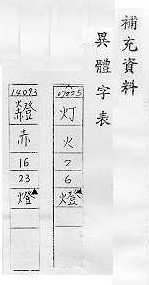 補充資料
異體字表
灯
火
2
6
燈▲
14093
赤
16
23
燈▲